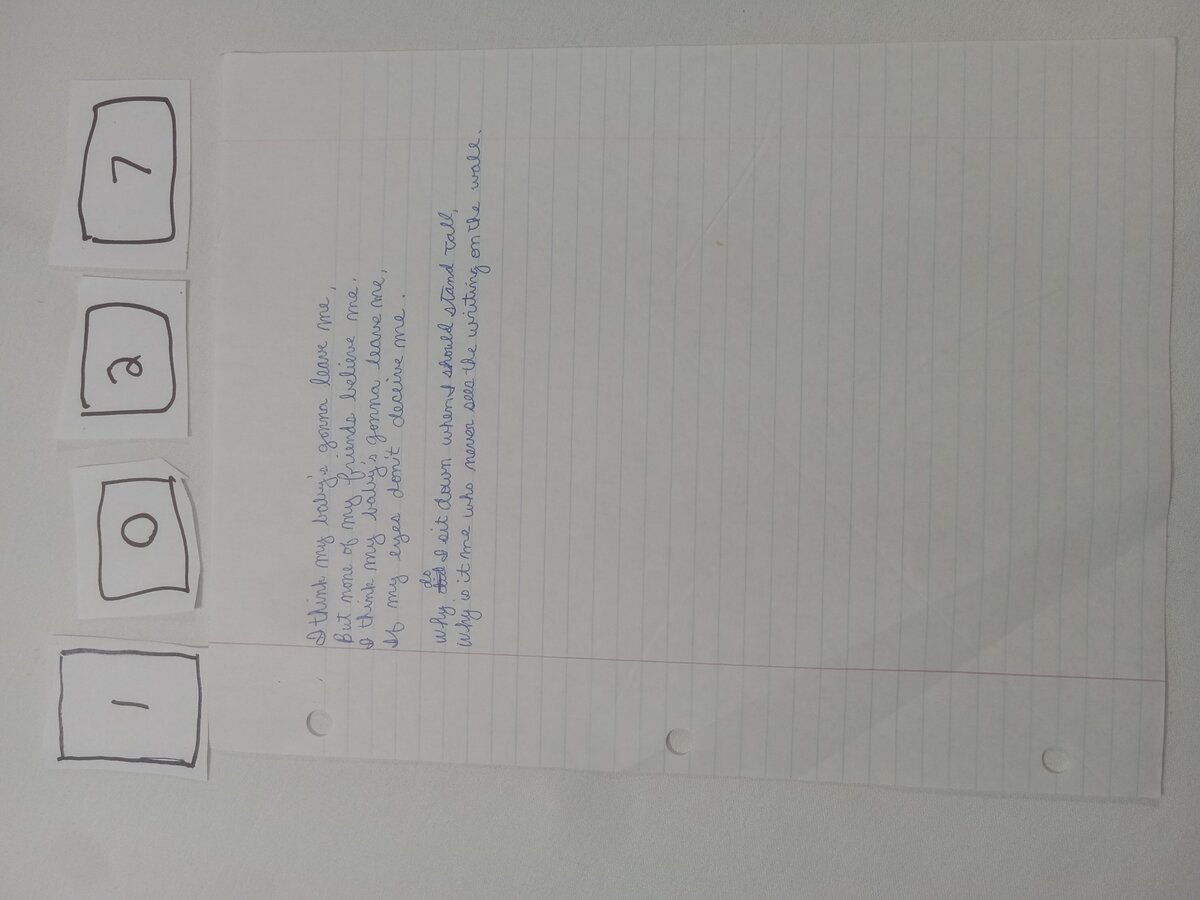 1 0 2 7
I think my baby's gonna leave me,
But none of my friends believe me.
I think my baby's gonna leave me,
If my eyes don't deceive me.
Why do I sit down when I should stand tall,
Why is it me who never sees the writing on the wall.